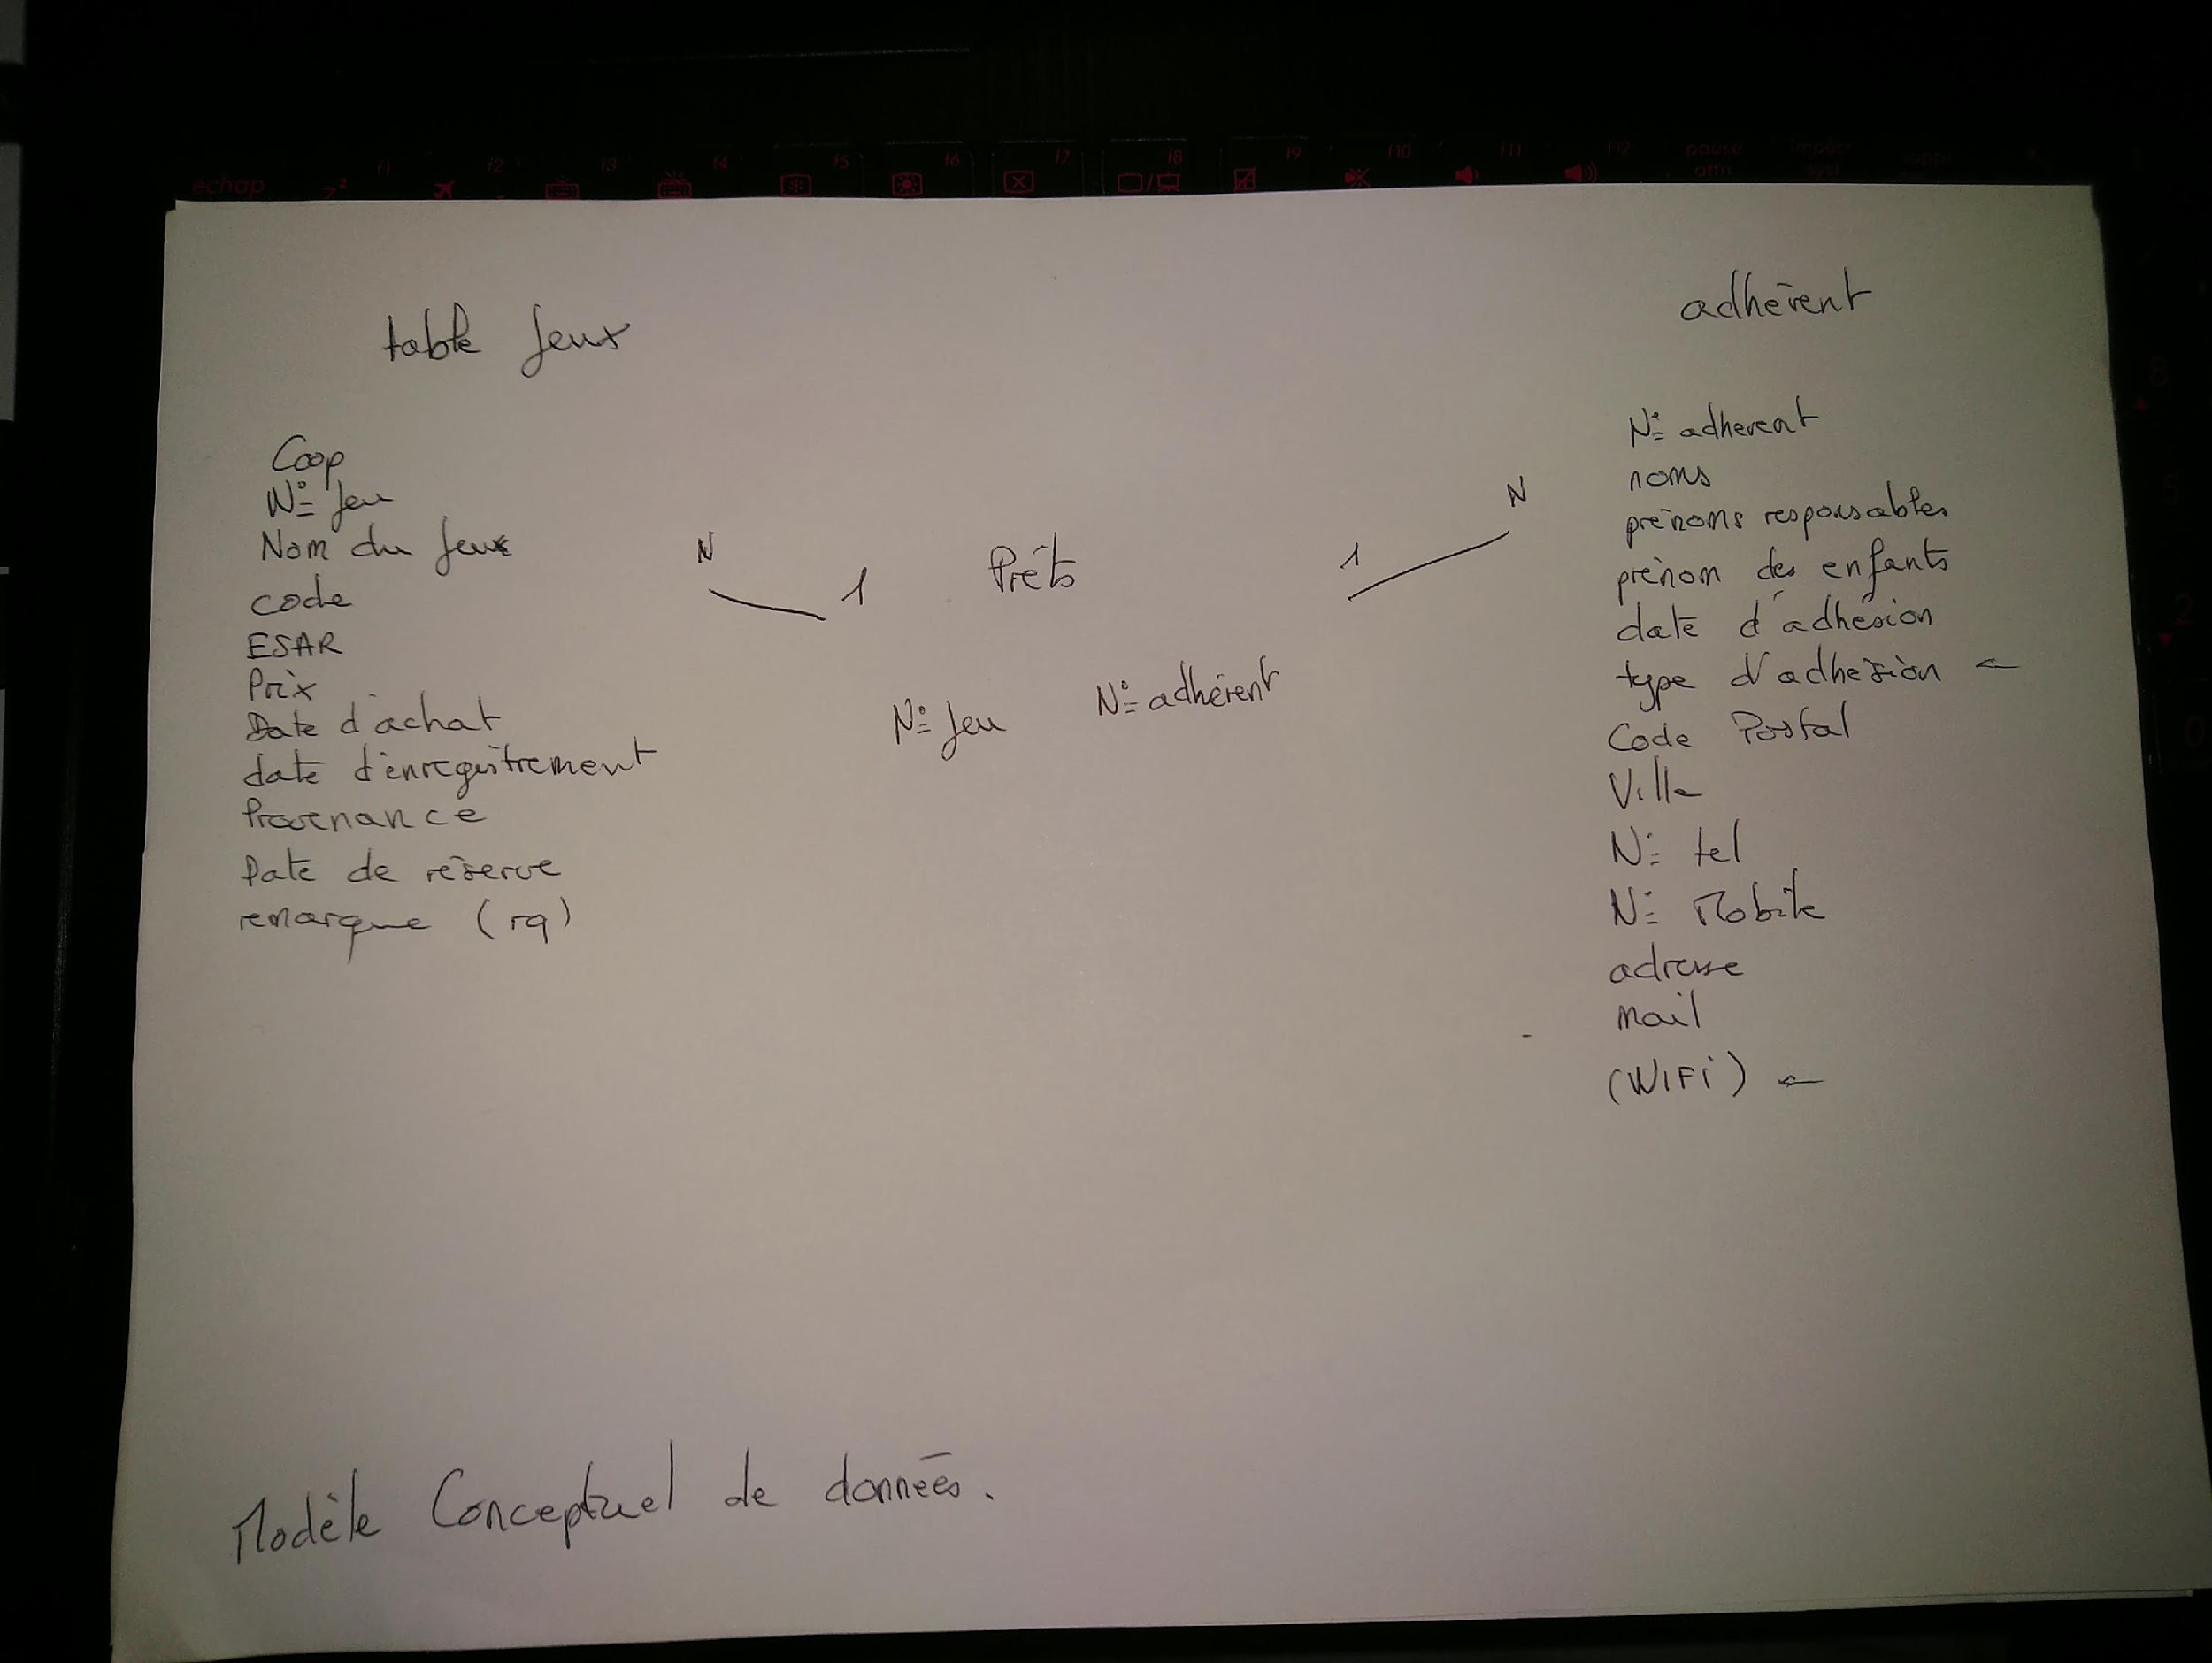 echap f1 f2 f3 f4 f5 f6 f7 f8 f9 f10 f11 f12 pause attn impéc syst
table Jeux
Coop
N° Jeu
Nom du Jeux
code
ESAR
Prix
Date d'achat
date d'enregistrement
Provenance
Date de réserve
remarque (rq)
N 1
Prêts
1 N
N° Jeu N° adhérent
adhérent
N° adherent
noms
prénoms responsables
prénom des enfants
date d'adhésion
type d'adhésion ←
Code Postal
Ville
N° tel
N° Mobile
adresse
mail
(WIFi) ←
Modèle Conceptuel de données.